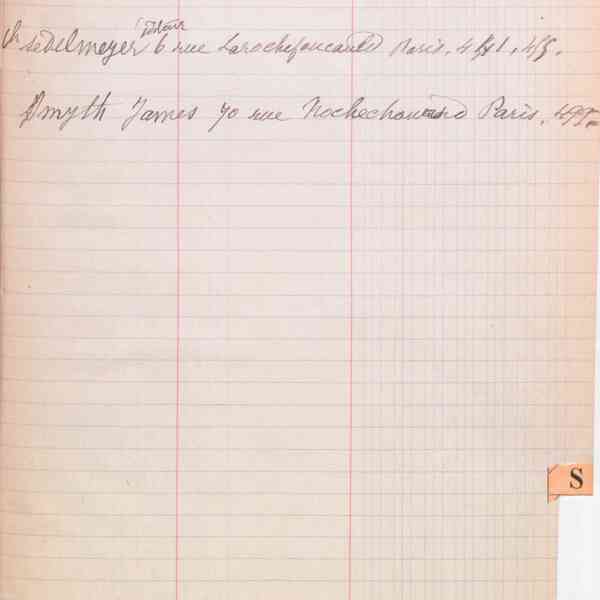 Sedelmeyer 6 rue Larochefoucauld Paris.
Smyth James 70 rue Rochechouard Paris.
S